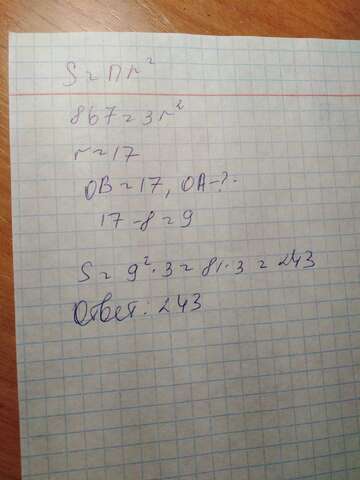 S = πr²
867 = 3r²
r = 17
OB = 17, OA - ?.
17 - 8 = 9
S = 9² · 3 = 81 · 3 = 243
Ответ: 243